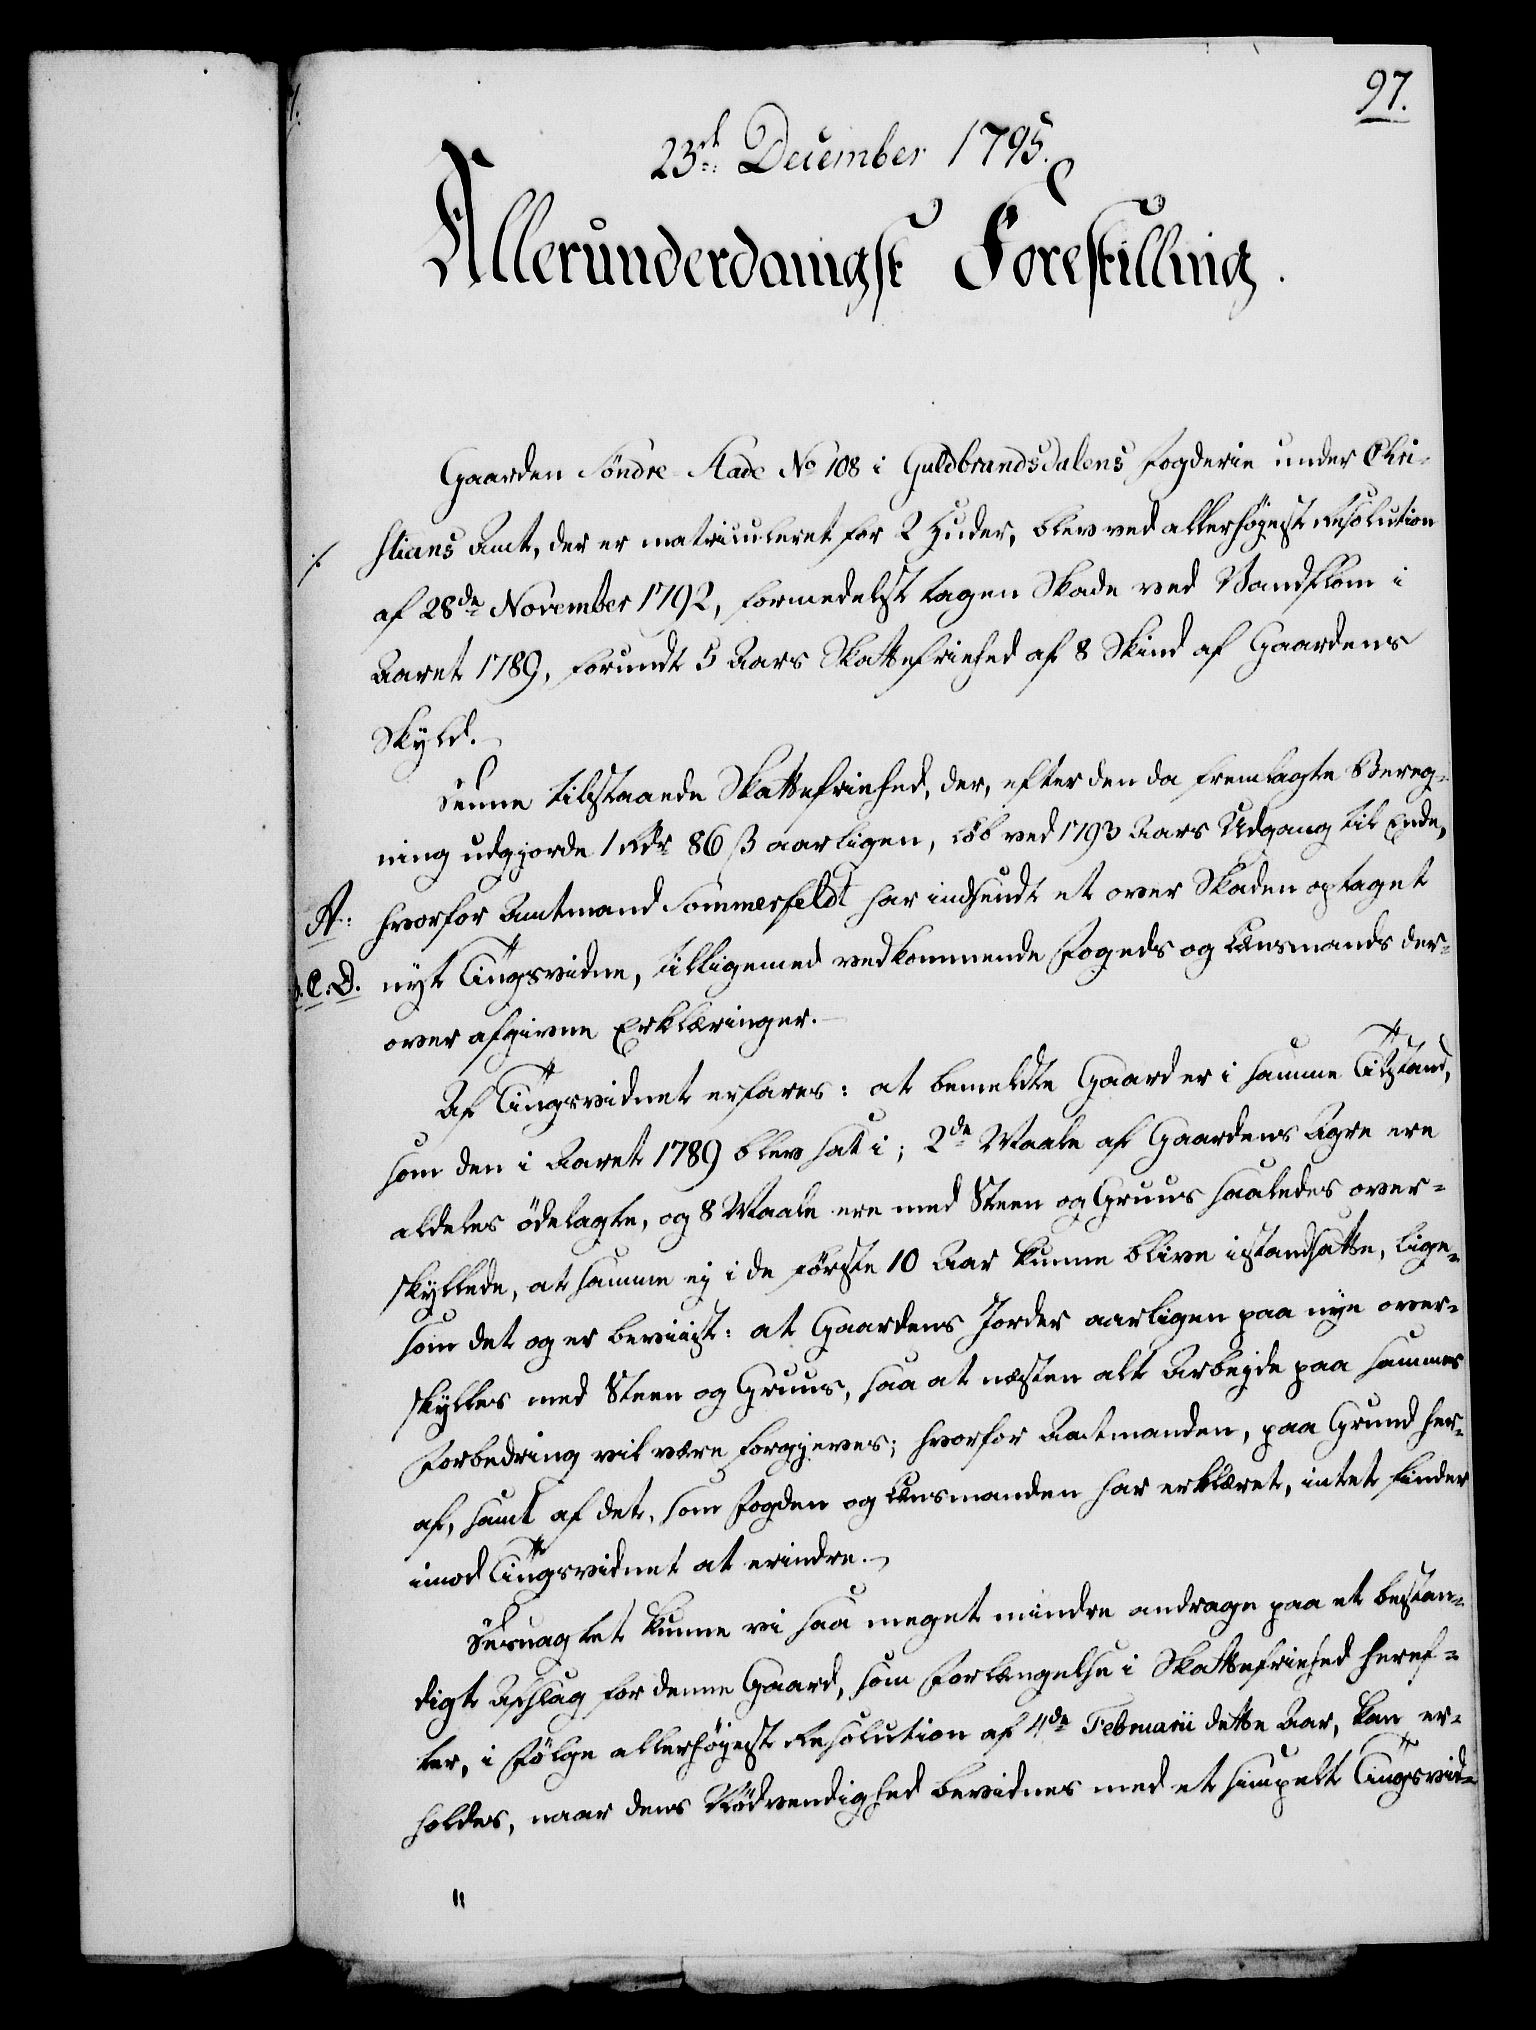 97.
23de December 1795.
Allerunderdanigst Forestilling.
Gaarden Söndre Aade No 108 i Guldbrandsdalens Fogderie under Chri-
./. stians Amt, der er matriculeret for 2 Huder, blev ved allerhöjest Resolution
af 28de November 1792, formedelst tagen Skade ved Vandflom i
Aaret 1789, forundt 5 Aars Skattefriehed af 8 Skind af Gaardens
Skyld.
Denne tilstaaede Skattefriehed, der, efter den da fremlagte Bereg-
ning udgjorde 1 Rdr 86 ß aarligen, löb ved 1793 Aars Udgang til Ende,
A: hvorfor Amtmand Sommerfeldt har indsendt et over Skaden optaget
C.D. nyt Tingsvidne, tilligemed vedkommende Fogeds og Lensmands der-
over afgivne Erklæringer.
Af Tingsvidnet erfares: at bemeldte Gaard er i samme Tilstand,
som den i Aaret 1789 blev sat i; 2de Maale af Gaardens Agre ere
aldeles ödelagte, og 8 Maale ere med Steen og Gruus saaledes over-
skyllede, at samme ej i de förste 10 Aar kunne blive istandsatte, lige-
som det og er beviist: at Gaardens Jorder aarligen paa nye over-
skylles med Steen og Gruus, saa at næsten alt Arbejde paa sammes
Forbedring vil være forgjeves; hvorfor Amtmanden, paa Grund her-
af, samt af det, som Fogden og Lensmanden har erklæret, intet finder
imod Tingsvidnet at erindre.
Desuagtet kunne vi saa meget mindre andrage paa et bestan-
digt Afslag for denne Gaard, som Forlængelse i Skattefriehed heref-
ter, i Fölge allerhöjest Resolution af 4de Februarii dette Aar, kan er-
holdes, naar dens Nödvendighed bevidnes med et simpelt Tingsvid-
"